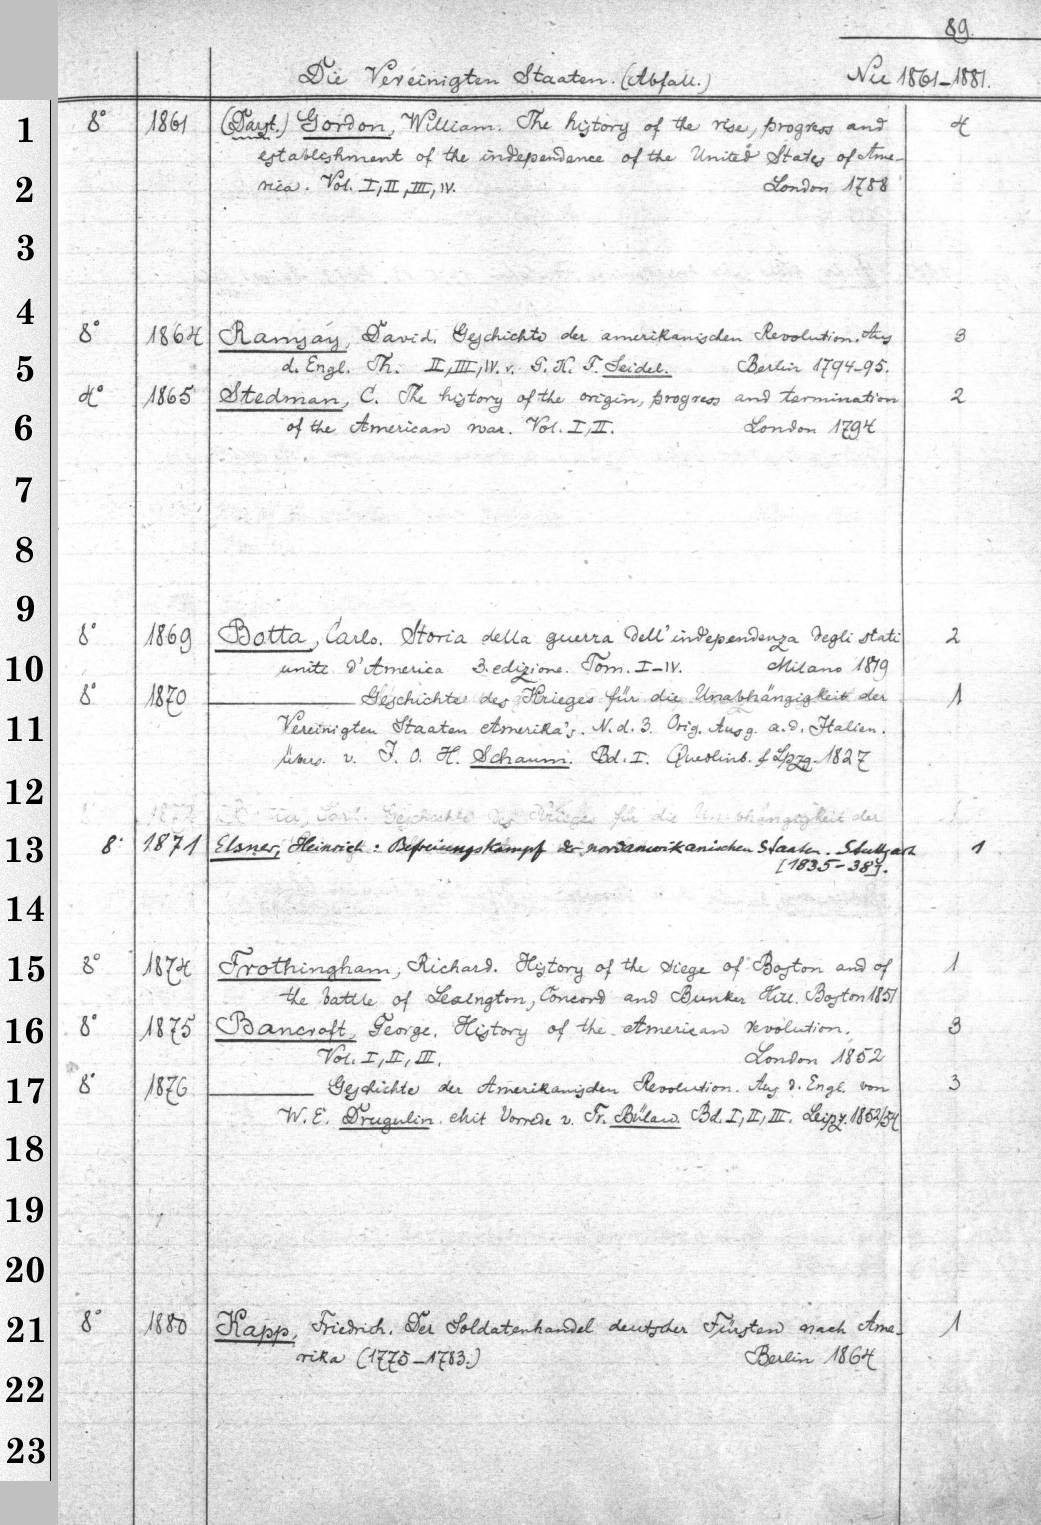 89.
Die Vereinigten Staaten. (Abfall.) Nu 1861-1881.
1 8° 1861 Gordon, William. The history of the rise, progress and 4
establishment of the independence of the United States of Ame-
2 rica. Vol. I, II, III, IV. London 1788
3
4
8° 1864 Ramsay, David. Geschichte der amerikanischen Revolution. Aus 3
5 d. Engl. Th. II, III, IV. v. G. K. F. Seidel. Berlin 1794-95.
4° 1865 Stedman, C. The history of the origin, progress and termination 2
6 of the American war. Vol. I, II. London 1794
7
8
9
8° 1869 Botta, Carlo. Storia della guerra dell'independenza degli stati 2
10 uniti d'America 3. edizione. Tom. I-IV. Milano 1819
8° 1870 ——— Geschichte des Krieges für die Unabhängigkeit der 1
11 Vereinigten Staaten Amerika's. N. d. 3. Orig. Ausg. a. d. Italien.
übers. v. F. O. H. Schaum. Bd. I. Quedlinb. & Lpzg. 1827
12
13 8° 1871 Elsner, Heinrich: Befreiungskampf der nordamerikanischen Staaten. Stuttgart 1
[1835-38].
14
15 8° 1874 Frothingham, Richard. History of the siege of Boston and of 1
the battle of Lexington, Concord and Bunker Hill. Boston 1851
16 8° 1875 Bancroft, George. History of the American revolution. 3
Vol. I, II, III. London 1852
17 8° 1876 ——— Geschichte der Amerikanischen Revolution. Aus d. Engl. von 3
W. E. Drugulin. Mit Vorrede v. Fr. Bülau. Bd. I, II, III. Leipz. 1852/54
18
19
20
21 8° 1880 Kapp, Friedrich. Der Soldatenhandel deutscher Fürsten nach Ame- 1
rika (1775-1783.) Berlin 1864
22
23